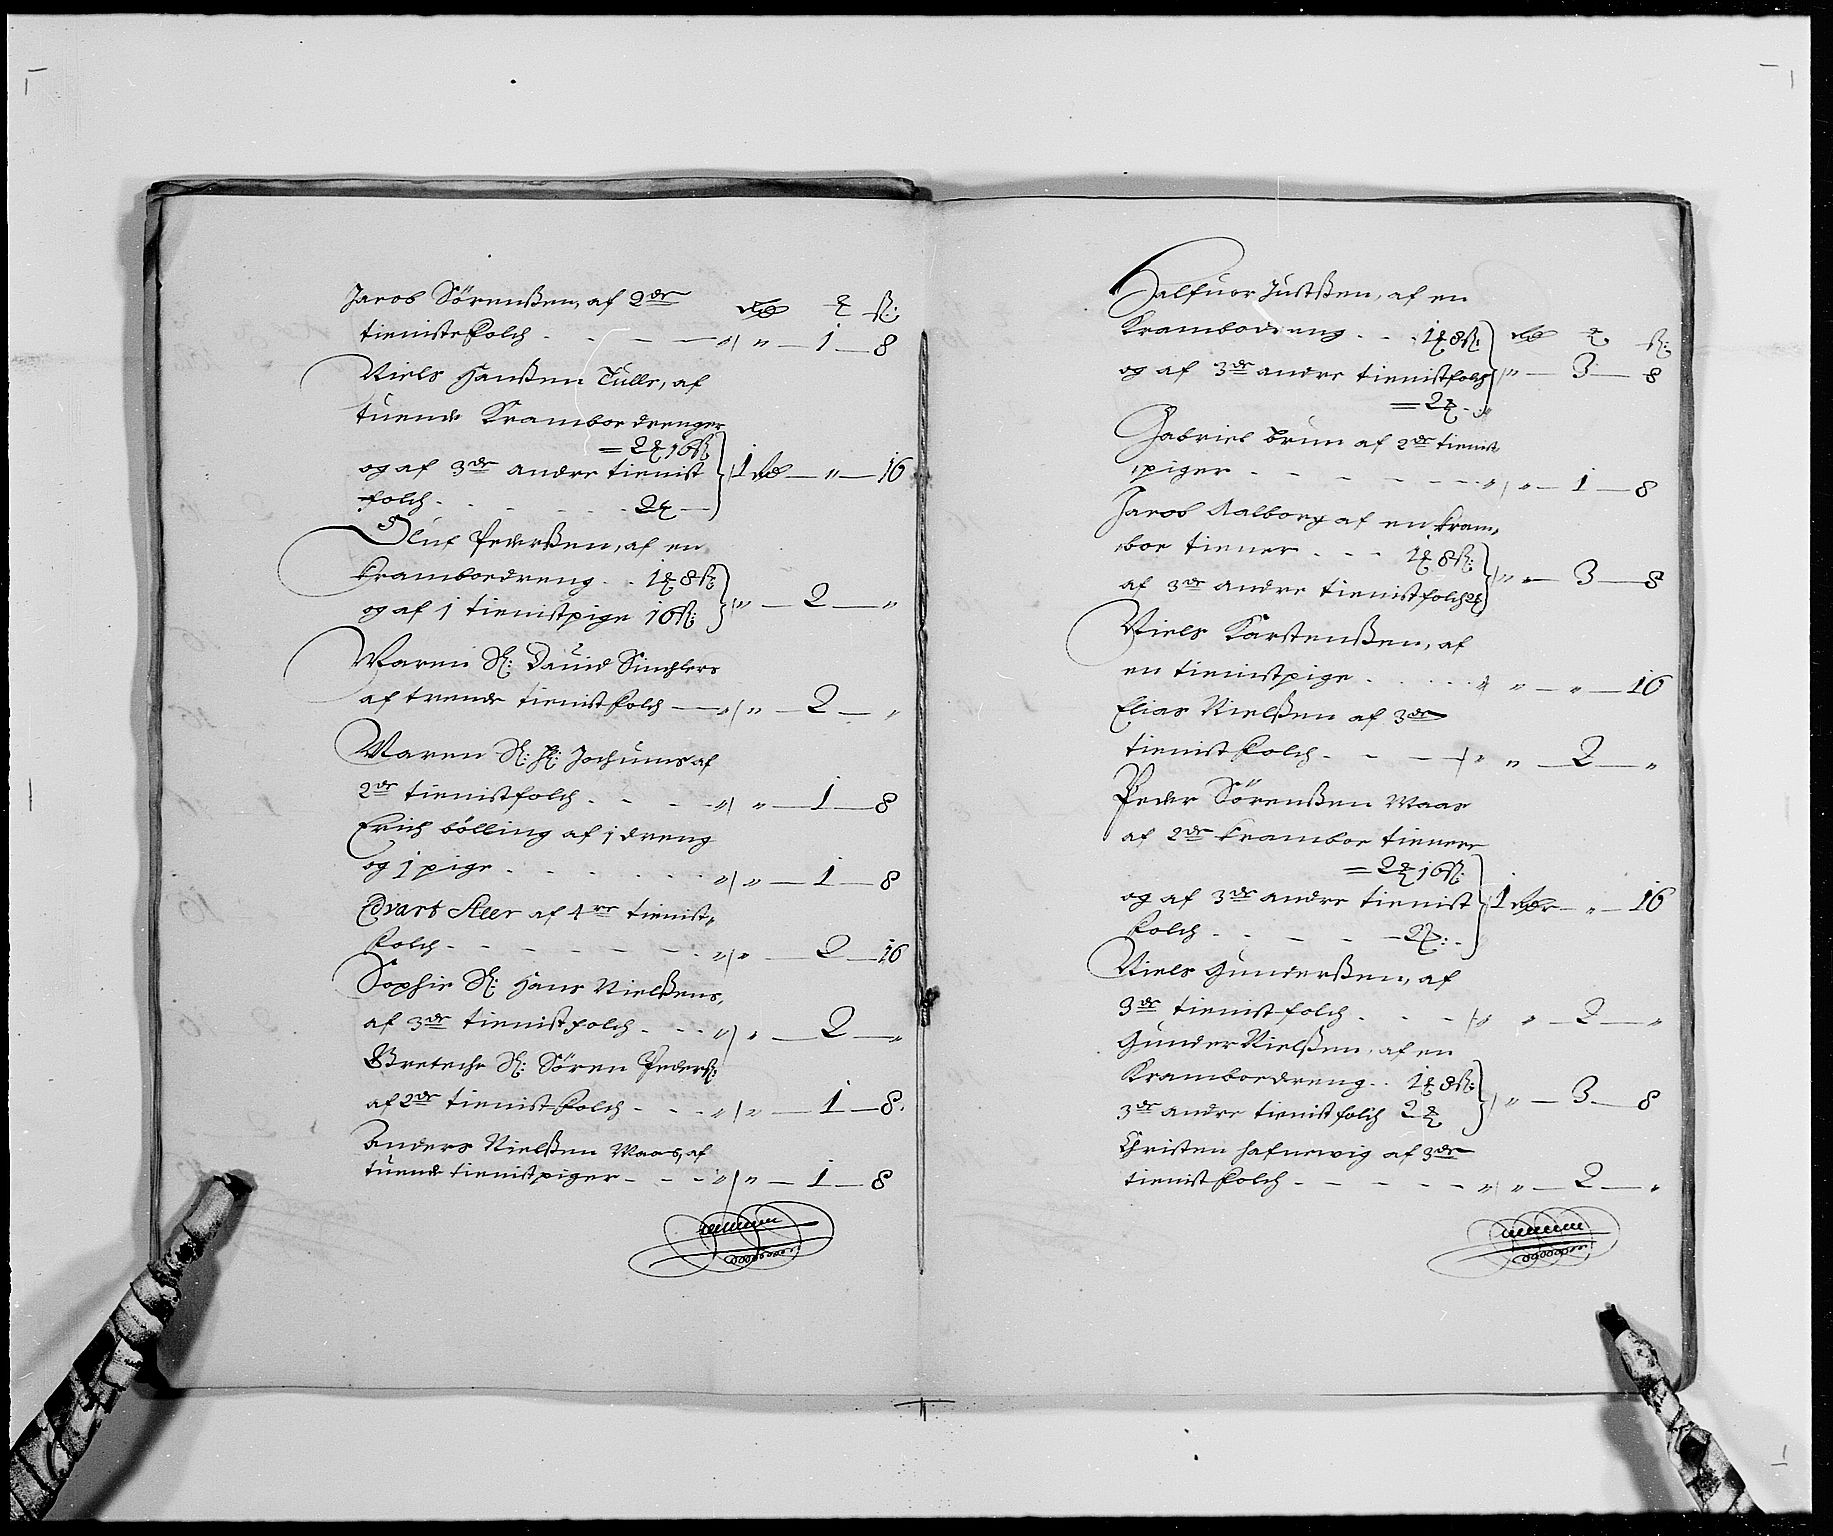 Jacob Sörenßen, af 2de Rd ꝣ ß:
tienistefolch - - - - " " — 1 — 8
Niels Hanßen Tulle, af
tuende Kramboe drenger
= 2ꝣ 16ß
og af 3de andre tienist 1 Rd — " — 16
folch - - - - 2ꝣ —
Oluf Pederßen, af en
kramboedreng - - 1ꝣ 8ß
og af 1 tienistpige 16ß: " — 2 — "
Maren Sl: Dauid Sinchlers
af trende tienistfolch — " " — 2 — "
Maren Sl: Hl: Jochums af
2de tienistfolch - - - " " — 1 — 8
Erich bölling af 1 dreng
og 1 pige - - - - " " — 1 — 8
Edvart Steer af 4re tienist-
folch - - - - - " " — 2 — 16
Sophie Sl: Hans Nielßens,
af 3de tienistfolch - - - " " — 2 — "
Gretche Sl: Sören Pederß:
af 2de tienistfolch - - - " " — 1 — 8.
Anders Nielßen Maas, af
tuende tienistpiger - - - " " — 1 — 8
Halfuor Justßen, af en
Kramboedreng - - 1ꝣ 8ß: Rd ꝣ ß:
og af 3de andre tienistfolch " — 3 — 8
= 2ꝣ - "
Gabriel Brun af 2de tienist
piger - - - - - " " — 1 — 8
Jacob Aalborg af en kram-
boe tiener - - - 1ꝣ 8ß:
af 3de andre tienistfolch 2ꝣ " " — 3 — 8
Niels Karstenßen, af
en tienistpige - - - - " " — " — 16
Elias Nielßen af 3de
tienistfolch - - - " " — 2 — "
Peder Sörenßen Maas
af 2de kramboe tienere
= 2ꝣ 16ß:
og af 3de andre tienist 1 Rdr — " — 16
folch - - - - 2ꝣ: -
Niels Gunderßen, af
3de tienistfolch - - - " " — 2 — "
Gunder Nielßen, af en
Kramboedreng - - 1ꝣ 8ß:
3de andre tienistfolch 2ꝣ " — 3 — 8
Christen Hafuevig af 3de
tienistfolch - - - - " " — 2 — "